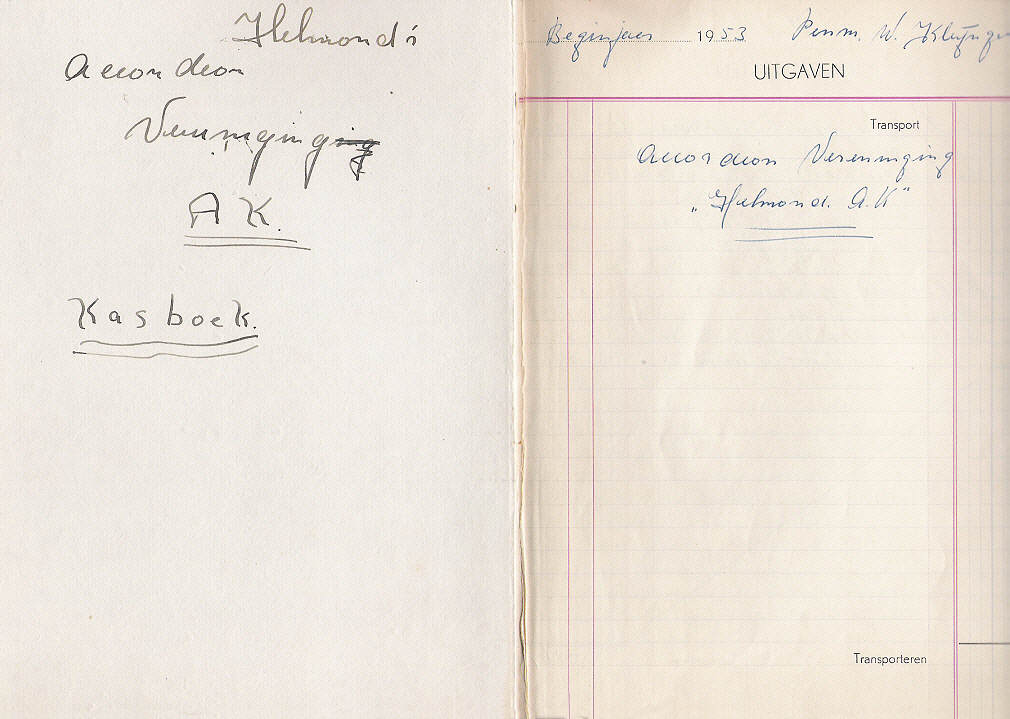 Helmond's
Accordeon
Vereniging
A K.
Kasboek.
Beginjaar 1953 Penm. W.
UITGAVEN
Transport
Accordeon Vereniging
„Helmond. A.K"
Transporteren